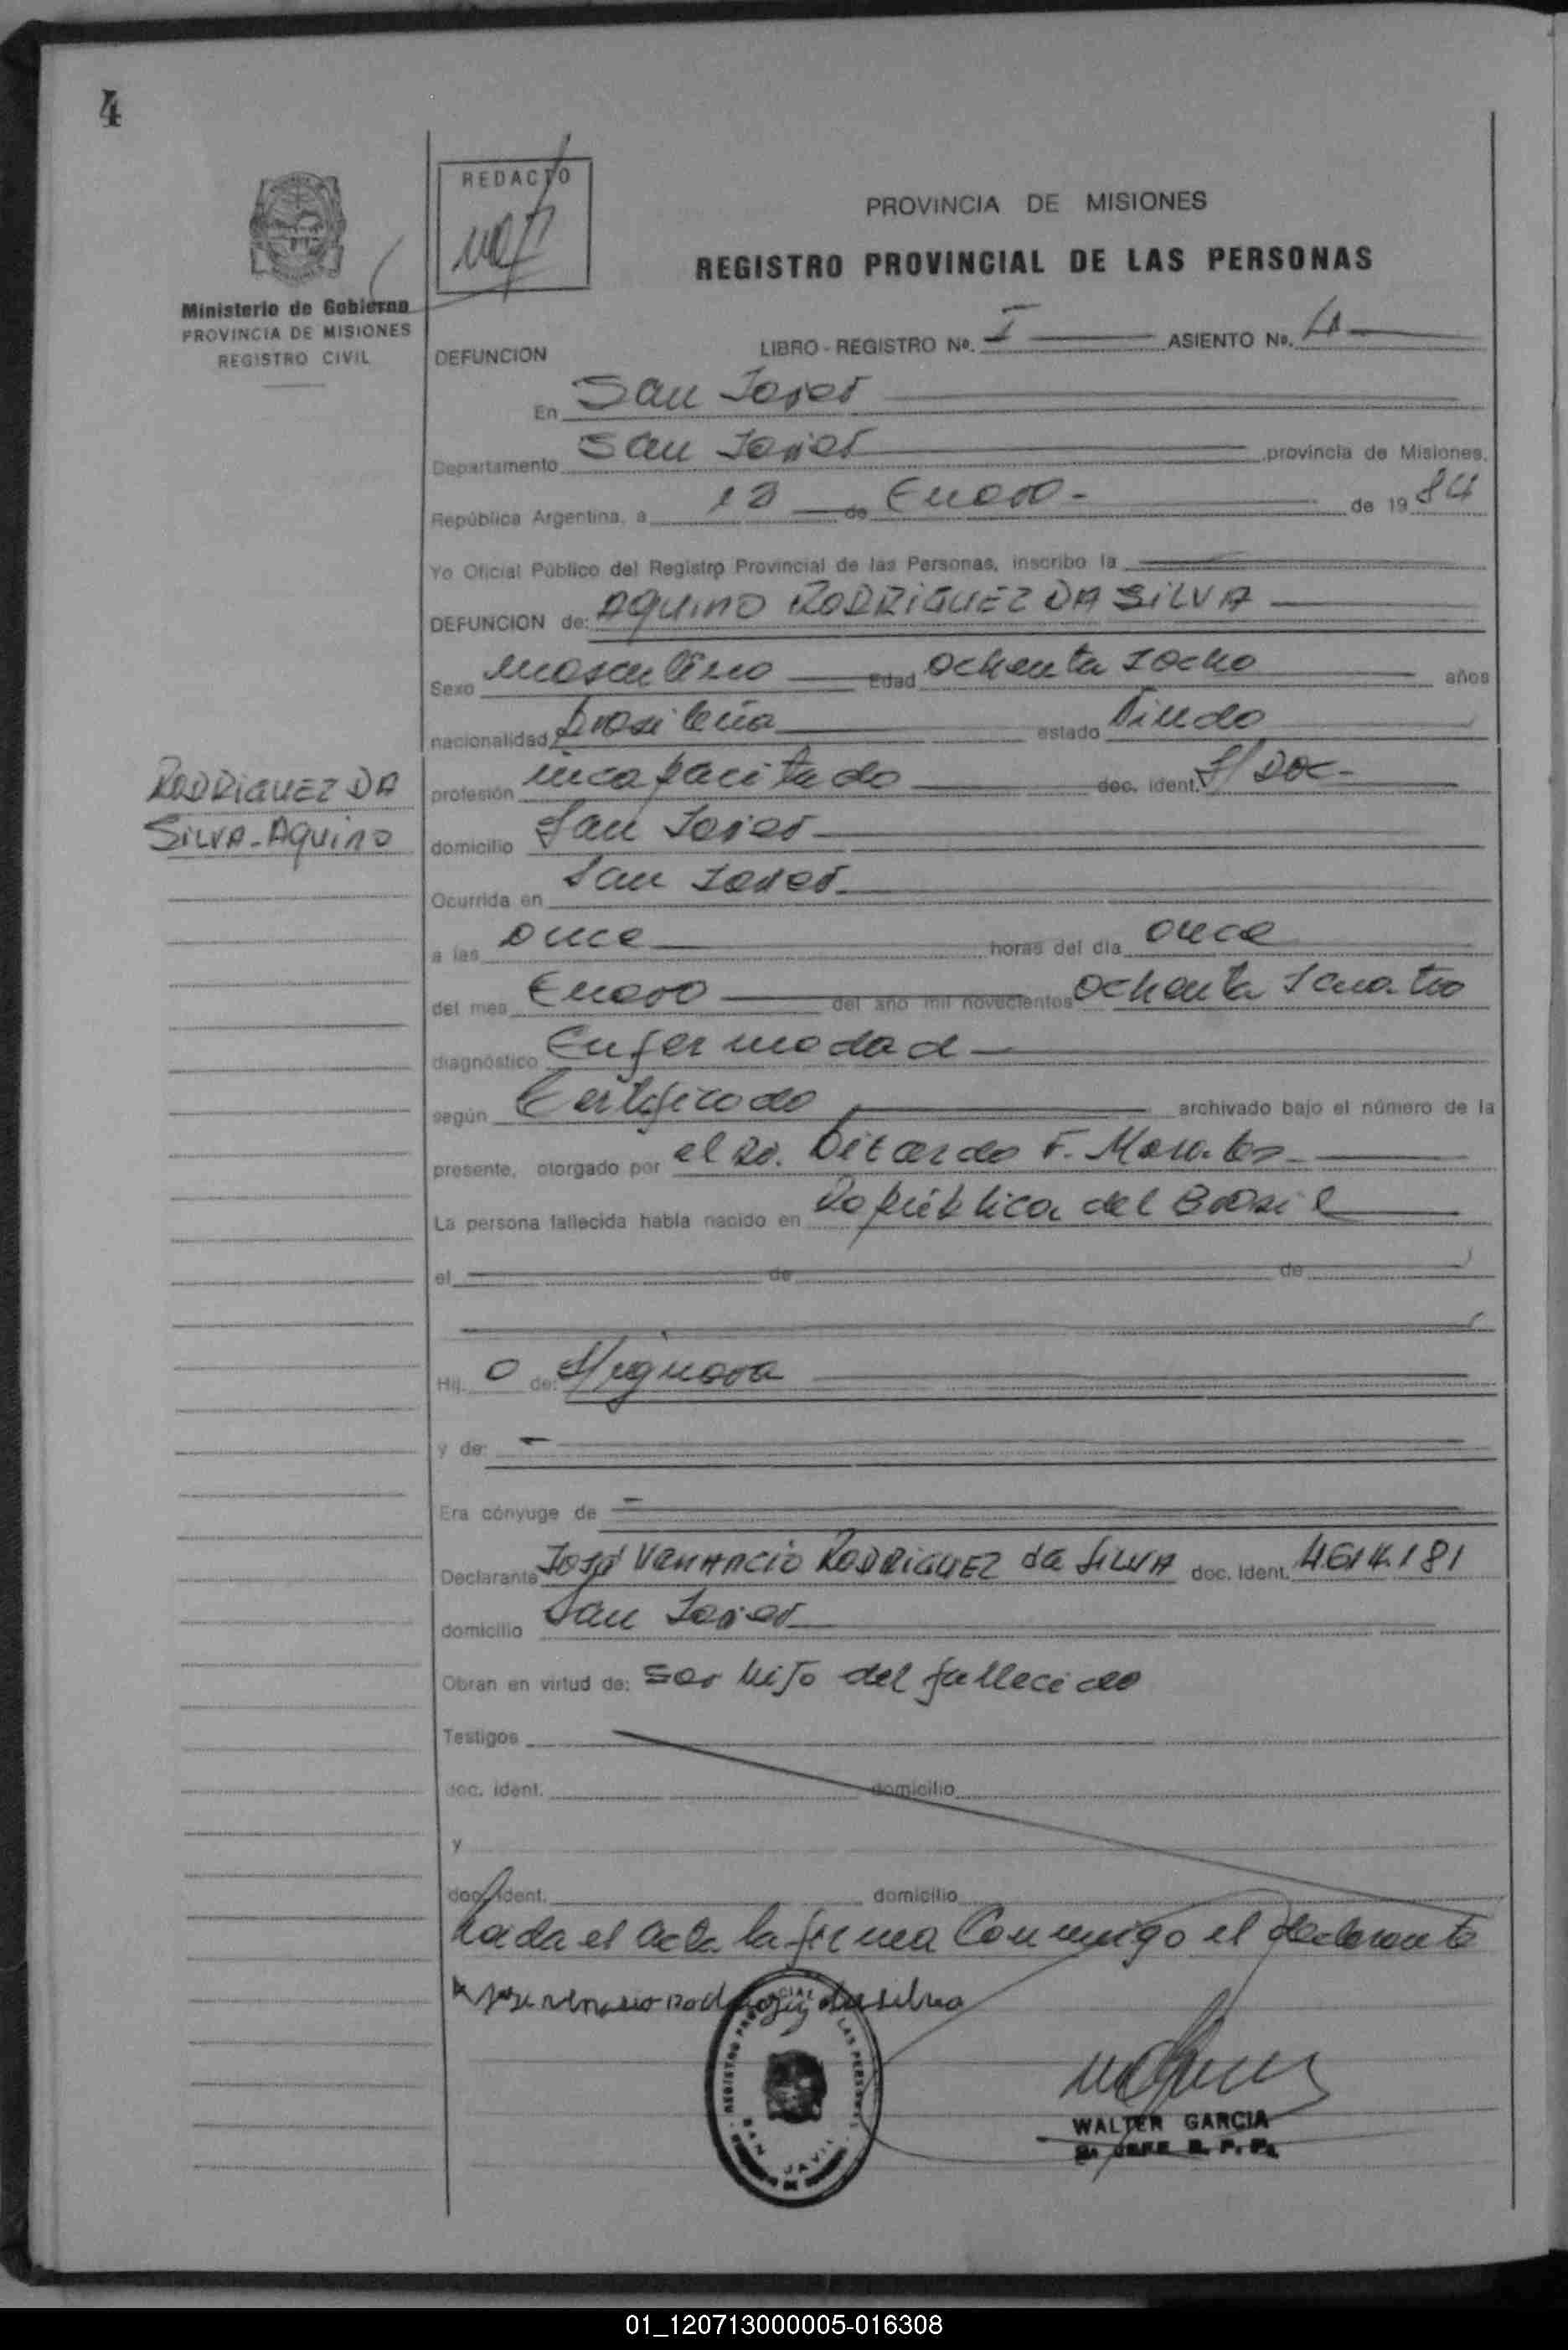 4
REDACTO
PROVINCIA DE MISIONES
REGISTRO PROVINCIAL DE LAS PERSONAS
Ministerio de Gobierno
PROVINCIA DE MISIONES
REGISTRO CIVIL
DEFUNCION
LIBRO - REGISTRO No. I ASIENTO No. 4
En San Javier
Departamento San Javier provincia de Misiones,
República Argentina, a de Enero - de 1984
Yo Oficial Público del Registro Provincial de las Personas, inscribo la
DEFUNCION de: AQUINO RODRIGUEZ DA SILVA
Sexo masculino Edad ochenta y ocho años
nacionalidad brasileña estado Viudo
RODRIGUEZ DA
SILVA - AQUINO
profesión incapacitado doc. ident. S/ Doc -
domicilio San Javier
Ocurrida en San Javier
a las once horas del día once
del mes Enero del año mil novecientos ochenta y cuatro
diagnóstico Enfermedad
según Certificado archivado bajo el número de la
presente, otorgado por el Dr. F. Morales
La persona fallecida había nacido en República del Brasil
el de de
Hij o de: Se ignora
y de: -
Era cónyuge de -
Declarante José VENANCIO RODRIGUEZ da SILVA doc. ident. 4614.181
domicilio San Javier
Obran en virtud de: ser hijo del fallecido
Testigos
doc. ident. domicilio
y
doc. ident. domicilio
Leída el acta la firma conmigo el declarante
REGISTRO PROVINCIAL DE LAS PERSONAS
SAN JAVIER
WALTER GARCIA
JEFE R. P. P.
01_120713000005-016308